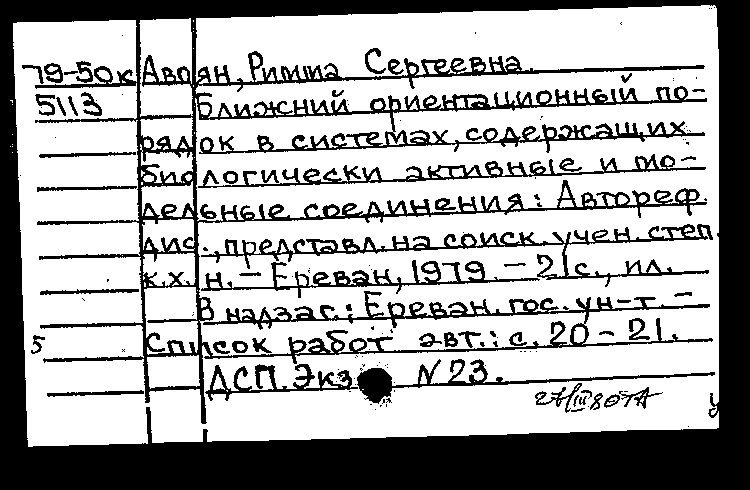 79-50к Авоян, Римма Сергеевна.
5113 Ближний ориентационный по-
рядок в системах, содержащих
биологически активные и мо-
дельные соединения: Автореф.
дис., представл. на соиск. учен. степ.
к.х.н. - Ереван, 1979. - 21с., ил.
В надзаг.: Ереван. гос. ун-т. -
5 Список работ авт.: с. 20-21.
ДСП. Экз. N 23.